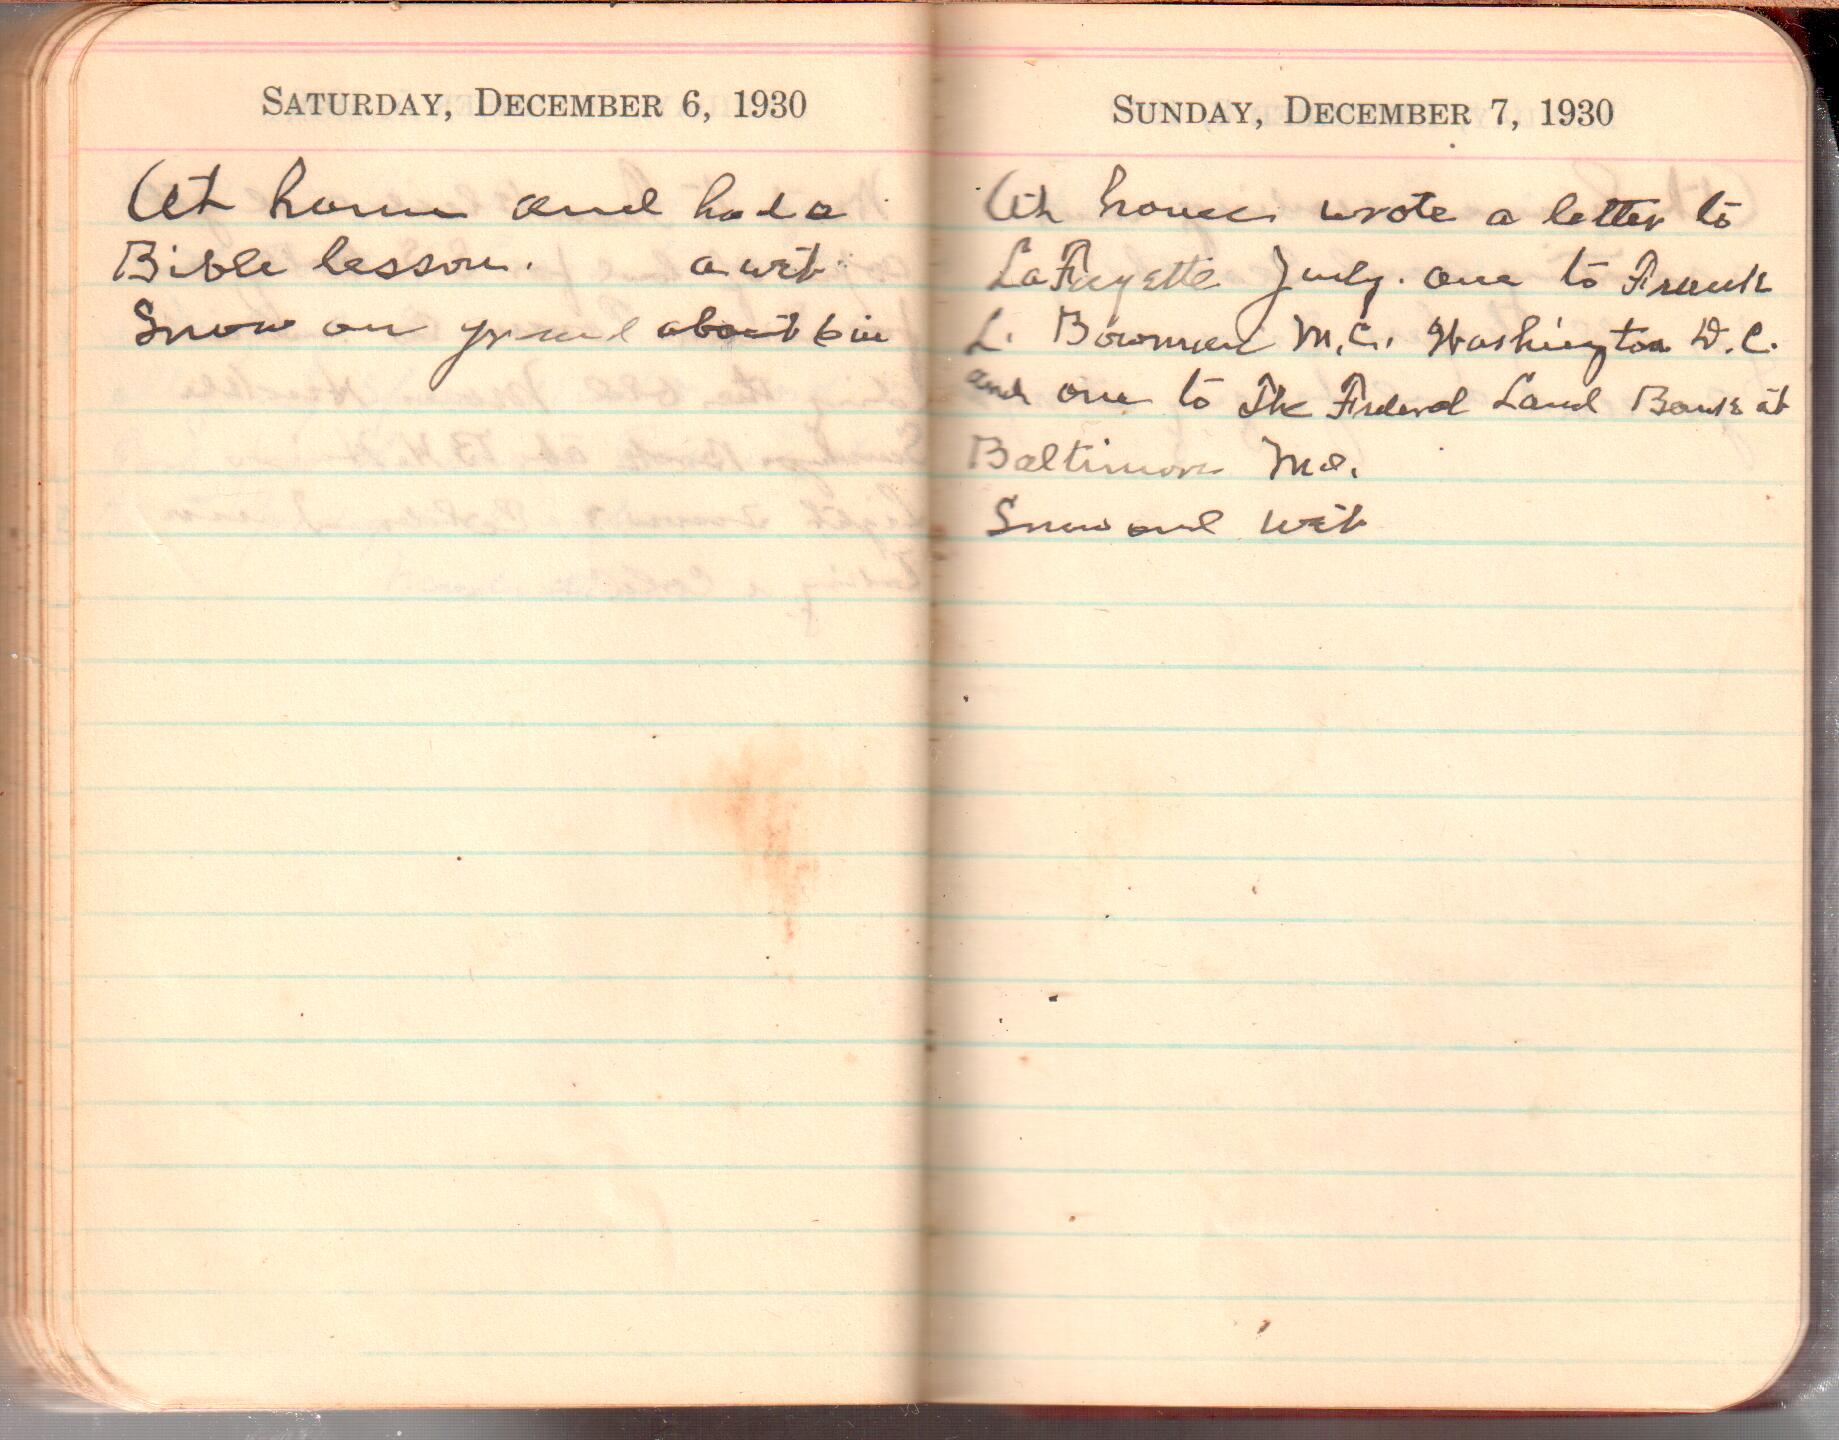 SATURDAY, DECEMBER 6, 1930
At home and had a
Bible lesson. a wet
Snow on ground about 6 in
SUNDAY, DECEMBER 7, 1930
At home. wrote a letter to
LaFayette Judy. one to Frank
L. Bowman M.C. Washington D.C.
and one to The Federal Land Bank at
Baltimore Md.
Snow and wet